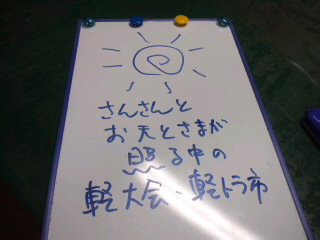 さんさんと
お天とさまが
照る中の
軽大会・軽トラ市